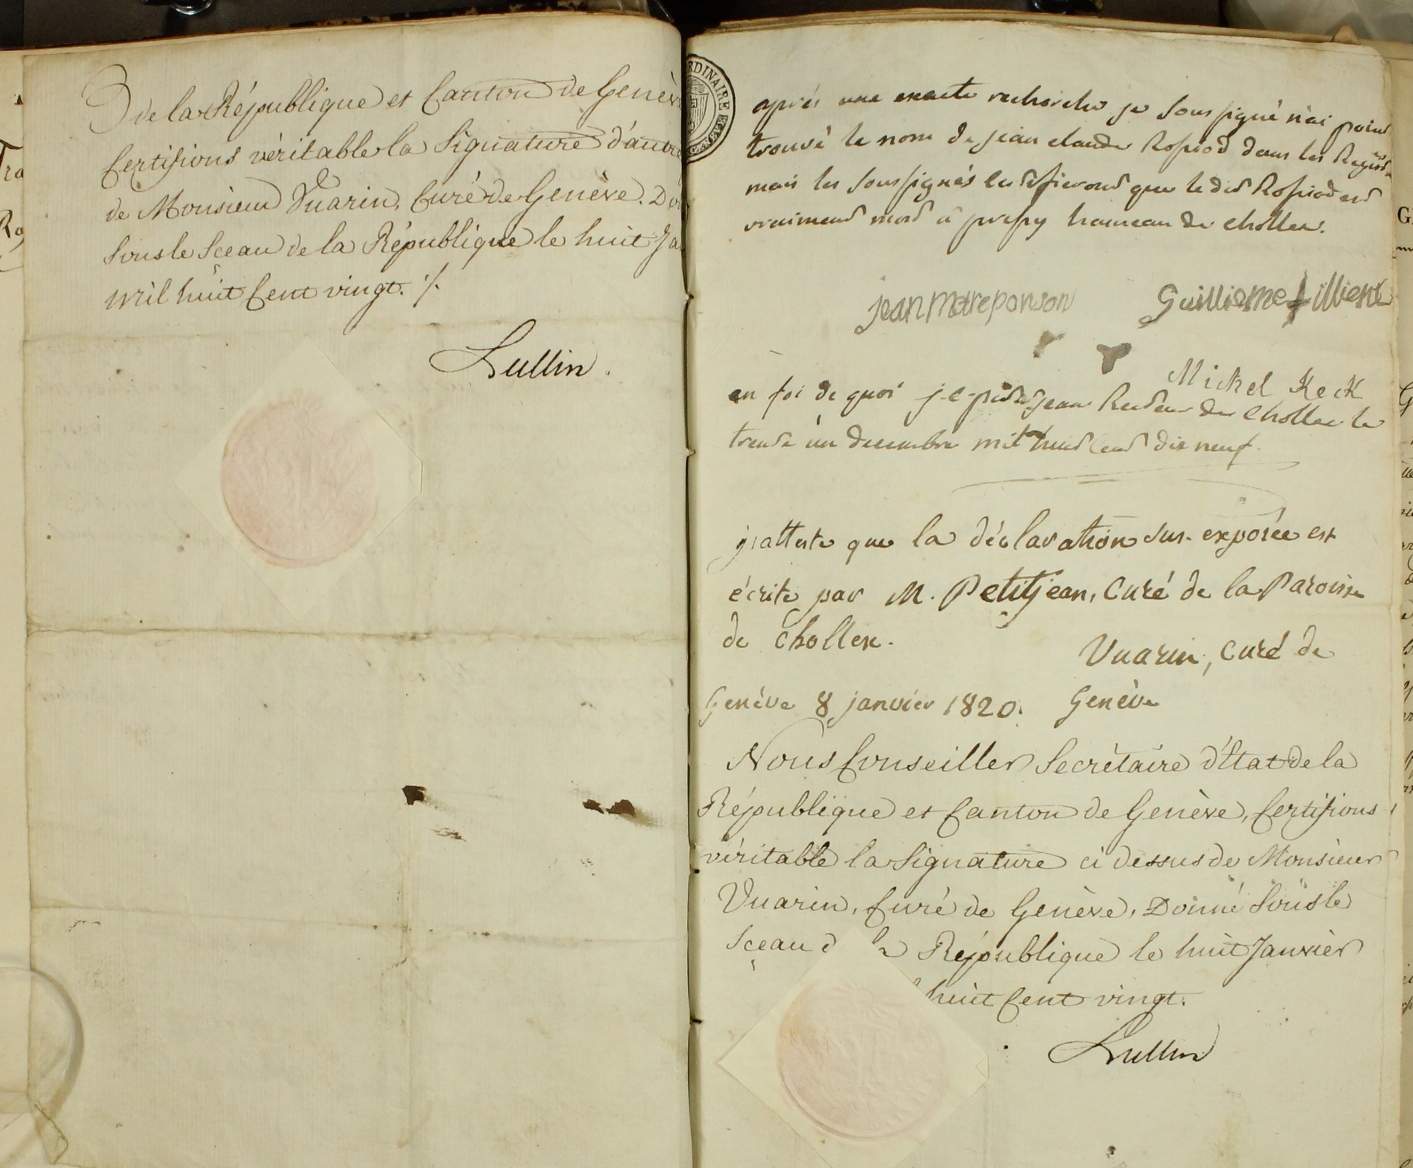 de la République et Canton de Genèv
Certifions véritable la Signature d'autre
de Monsieur Vuarin, Curé de Genève. Do
sous le Sceau de la République le huit Ja
mil huit Cent vingt. /.
Lullin.
RDINAIRE
après une exacte recherche je soussigné n'ai point
trouvé le nom de jean claude Rospiod dans les Regist
mais les soussignés certifieront que le dit Rospiod est
vraiment mort à prespy hameau de chollex.
jean mareponson Guillieme fillient
Michel Keck
en foi de quoi petitjean Recteur de Chollex le
trente un decembre mil huit cent dix neuf.
j'atteste que la déclaration sus-exposée est
écrite par M. Petitjean, Curé de la Paroisse
de Chollex.
Vuarin, Curé de
Genève 8 janvier 1820. Genève
Nous Conseiller Secrétaire d'Etat de la
République et Canton de Genève, Certifions
véritable la Signature ci dessus de Monsieur
Vuarin, Curé de Genève, Donné sous le
Sceau d la République le huit Janvier
huit Cent vingt.
Lullin